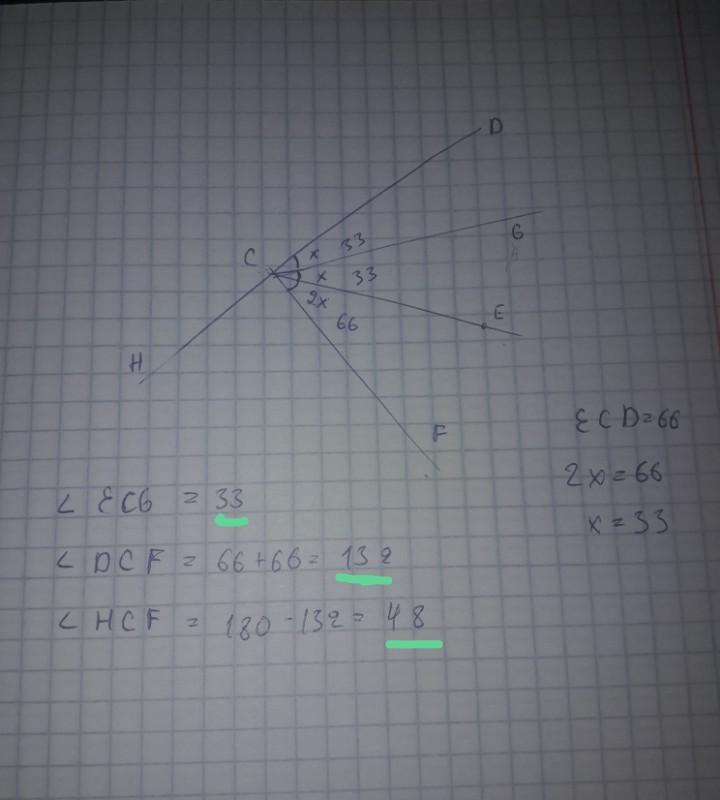 D
C x 33
G
x 33
2x
66
E
H
F
ECD=66
2x=66
x=33
∠ ECG = 33
∠ DCF = 66+66= 132
∠ HCF = 180-132= 48